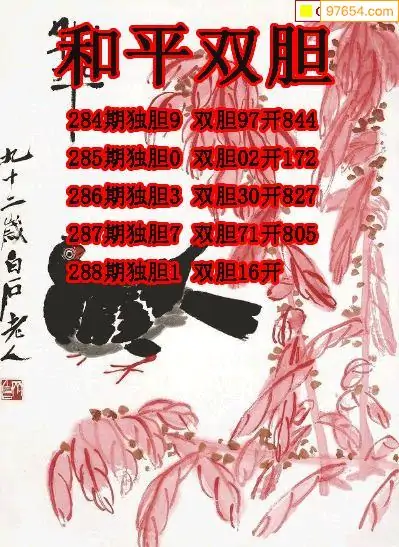 97654.com
和平双胆
284期独胆9 双胆97开844
285期独胆0 双胆02开172
286期独胆3 双胆30开827
287期独胆7 双胆71开805
288期独胆1 双胆16开
九十二岁白石老人